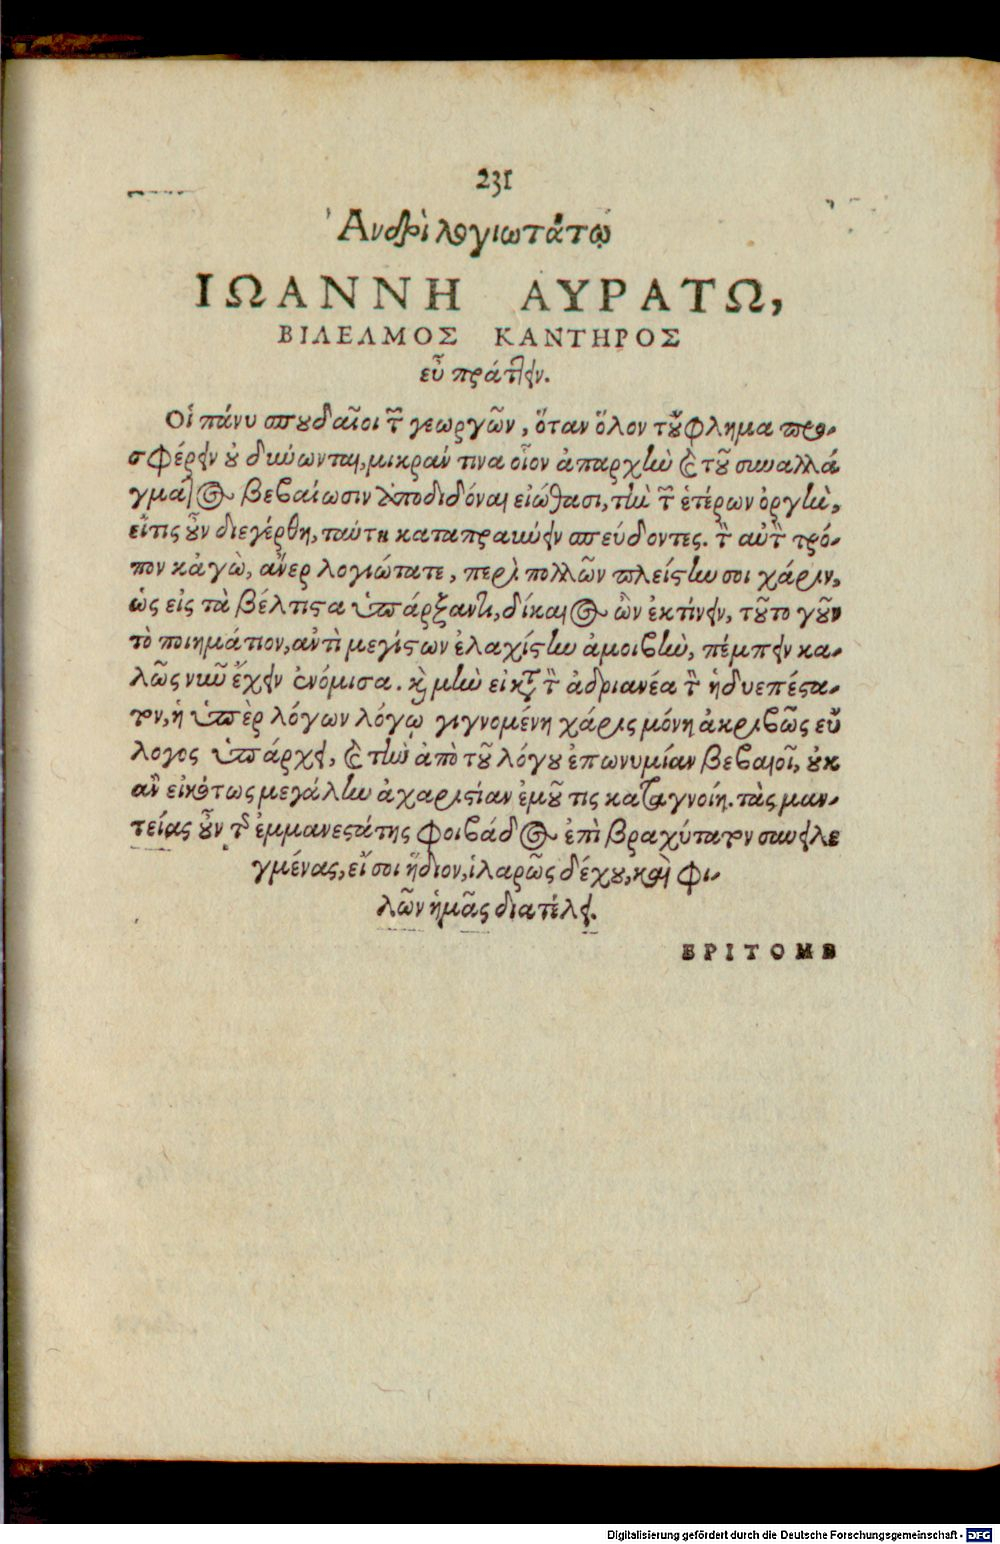 231
Ἀνδρὶ λογιωτάτῳ
ΙΩΑΝΝΗ ΑΥΡΑΤΩ,
ΒΙΛΕΛΜΟΣ ΚΑΝΤΗΡΟΣ
εὖ πράττειν.
Οἱ πάνυ σπουδαῖοι τῶν γεωργῶν, ὅταν ὅλον τοὔφλημα προσ-
φέρειν οὐ δύνωνται, μικράν τινα οἷον ἀπαρχὴν καὶ τοῦ συναλλά
γματος βεβαίωσιν ἀποδιδόναι εἰώθασι, τὴν τῶν ἑτέρων ὀργὴν,
εἴτις οὖν διεγέρθη, ταύτῃ καταπραΰνειν σπεύδοντες. τὸν αὐτὸν τρό-
πον κἀγὼ, ἄνερ λογιώτατε, περὶ πολλῶν πλείστην σοι χάριν,
ὡς εἰς τὰ βέλτιστα ὑπάρξαντι, δίκαιος ὢν ἐκτίνειν, τοῦτο γοῦν
τὸ ποιημάτιον, ἀντὶ μεγίστων ἐλαχίστην ἀμοιβὴν, πέμπειν κα-
λῶς νῦν ἔχειν ἐνόμισα. καὶ μὴν εἰ κατὰ τὸν ἀδριανέα τὸν ἡδυεπέστα-
τον, ἡ ὑπὲρ λόγων λόγῳ γιγνομένη χάρις μόνη ἀκριβῶς εὔ
λογος ὑπάρχει, καὶ τὴν ἀπὸ τοῦ λόγου ἐπωνυμίαν βεβαιοῖ, οὐκ
ἂν εἰκότως μεγάλην ἀχαριστίαν ἐμοῦ τις καταγνοίη. τὰς μαν-
τείας οὖν τῆς ἐμμανεστάτης φοιβάδος ἐπὶ βραχύτατον συνειλε
γμένας, εἴ σοι ἥδιον, ἱλαρῶς δέχου, καὶ φι-
λῶν ἡμᾶς διατέλει.
EPITOME
Digitalisierung gefördert durch die Deutsche Forschungsgemeinschaft - DFG